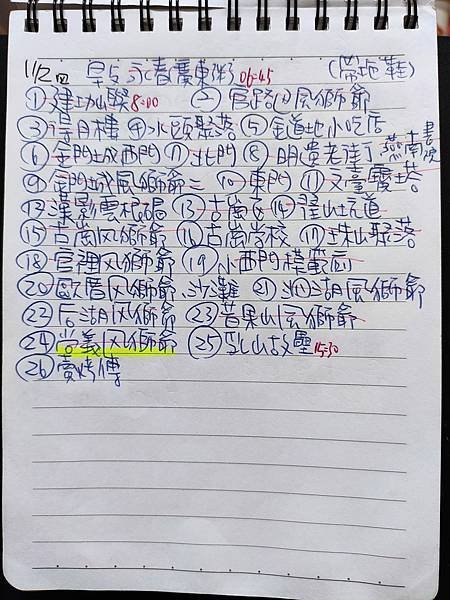 11/2四 早5永春廣東粥06:45 (帶地鞋)
①建功嶼8:00 ②官路邊風獅爺
③得月樓④水頭聚落⑤金道地小吃店
⑥金門城西門⑦北門⑧明遺老街 燕南書院
⑨金門城風獅爺三⑩東門⑪文臺寶塔
⑫漢影雲根碣⑬古崗⑭翟山坑道
⑮古崗风獅爺⑯古崗学校⑰珠山聚落
⑱官裡风獅爺⑲小西門模範廁
⑳歐厝风獅爺、沙灘㉑泗湖風獅爺
㉒后湖风獅爺㉓昔果山風獅爺
㉔嘗義风獅爺㉕乳山故壘15:30
㉖壹烤傳